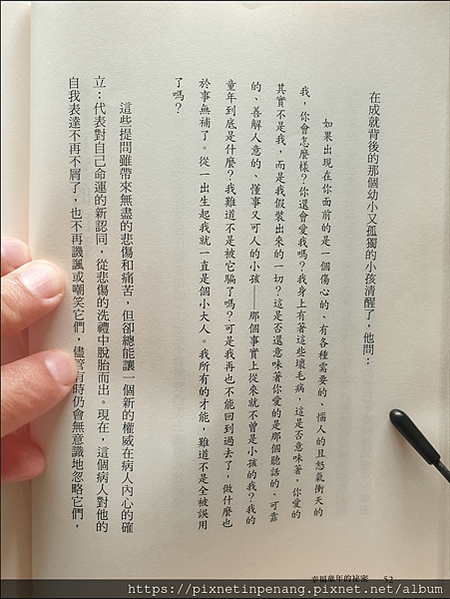 在成就背後的那個幼小又孤獨的小孩清醒了，他問：
如果出現在你面前的是一個傷心的、有各種需要的、惱人的且怒氣衝天的
我，你會怎麼樣？你還會愛我嗎？我身上有著這些壞毛病，這是否意味著，你愛的
其實不是我，而是我假裝出來的一切？這是否還意味著你愛的是那個聽話的、可靠
的、善解人意的、懂事又可人的小孩──那個事實上從來就不曾是小孩的我？我的
童年到底是什麼？我難道不是被它騙了嗎？可是我再也不能回到過去了，做什麼也
於事無補了。從一出生起我就一直是個小大人。我所有的才能，難道不是全被誤用
了嗎？
這些提問雖帶來無盡的悲傷和痛苦，但卻總能讓一個新的權威在病人內心的確
立：代表對自己命運的新認同，從悲傷的洗禮中脫胎而出。現在，這個病人對他的
自我表達不再不屑了，也不再譏諷或嘲笑它們，儘管有時仍會無意識地忽略它們，
幸福童年的祕密 52
https://pixnetinpenang.pixnet.net/album